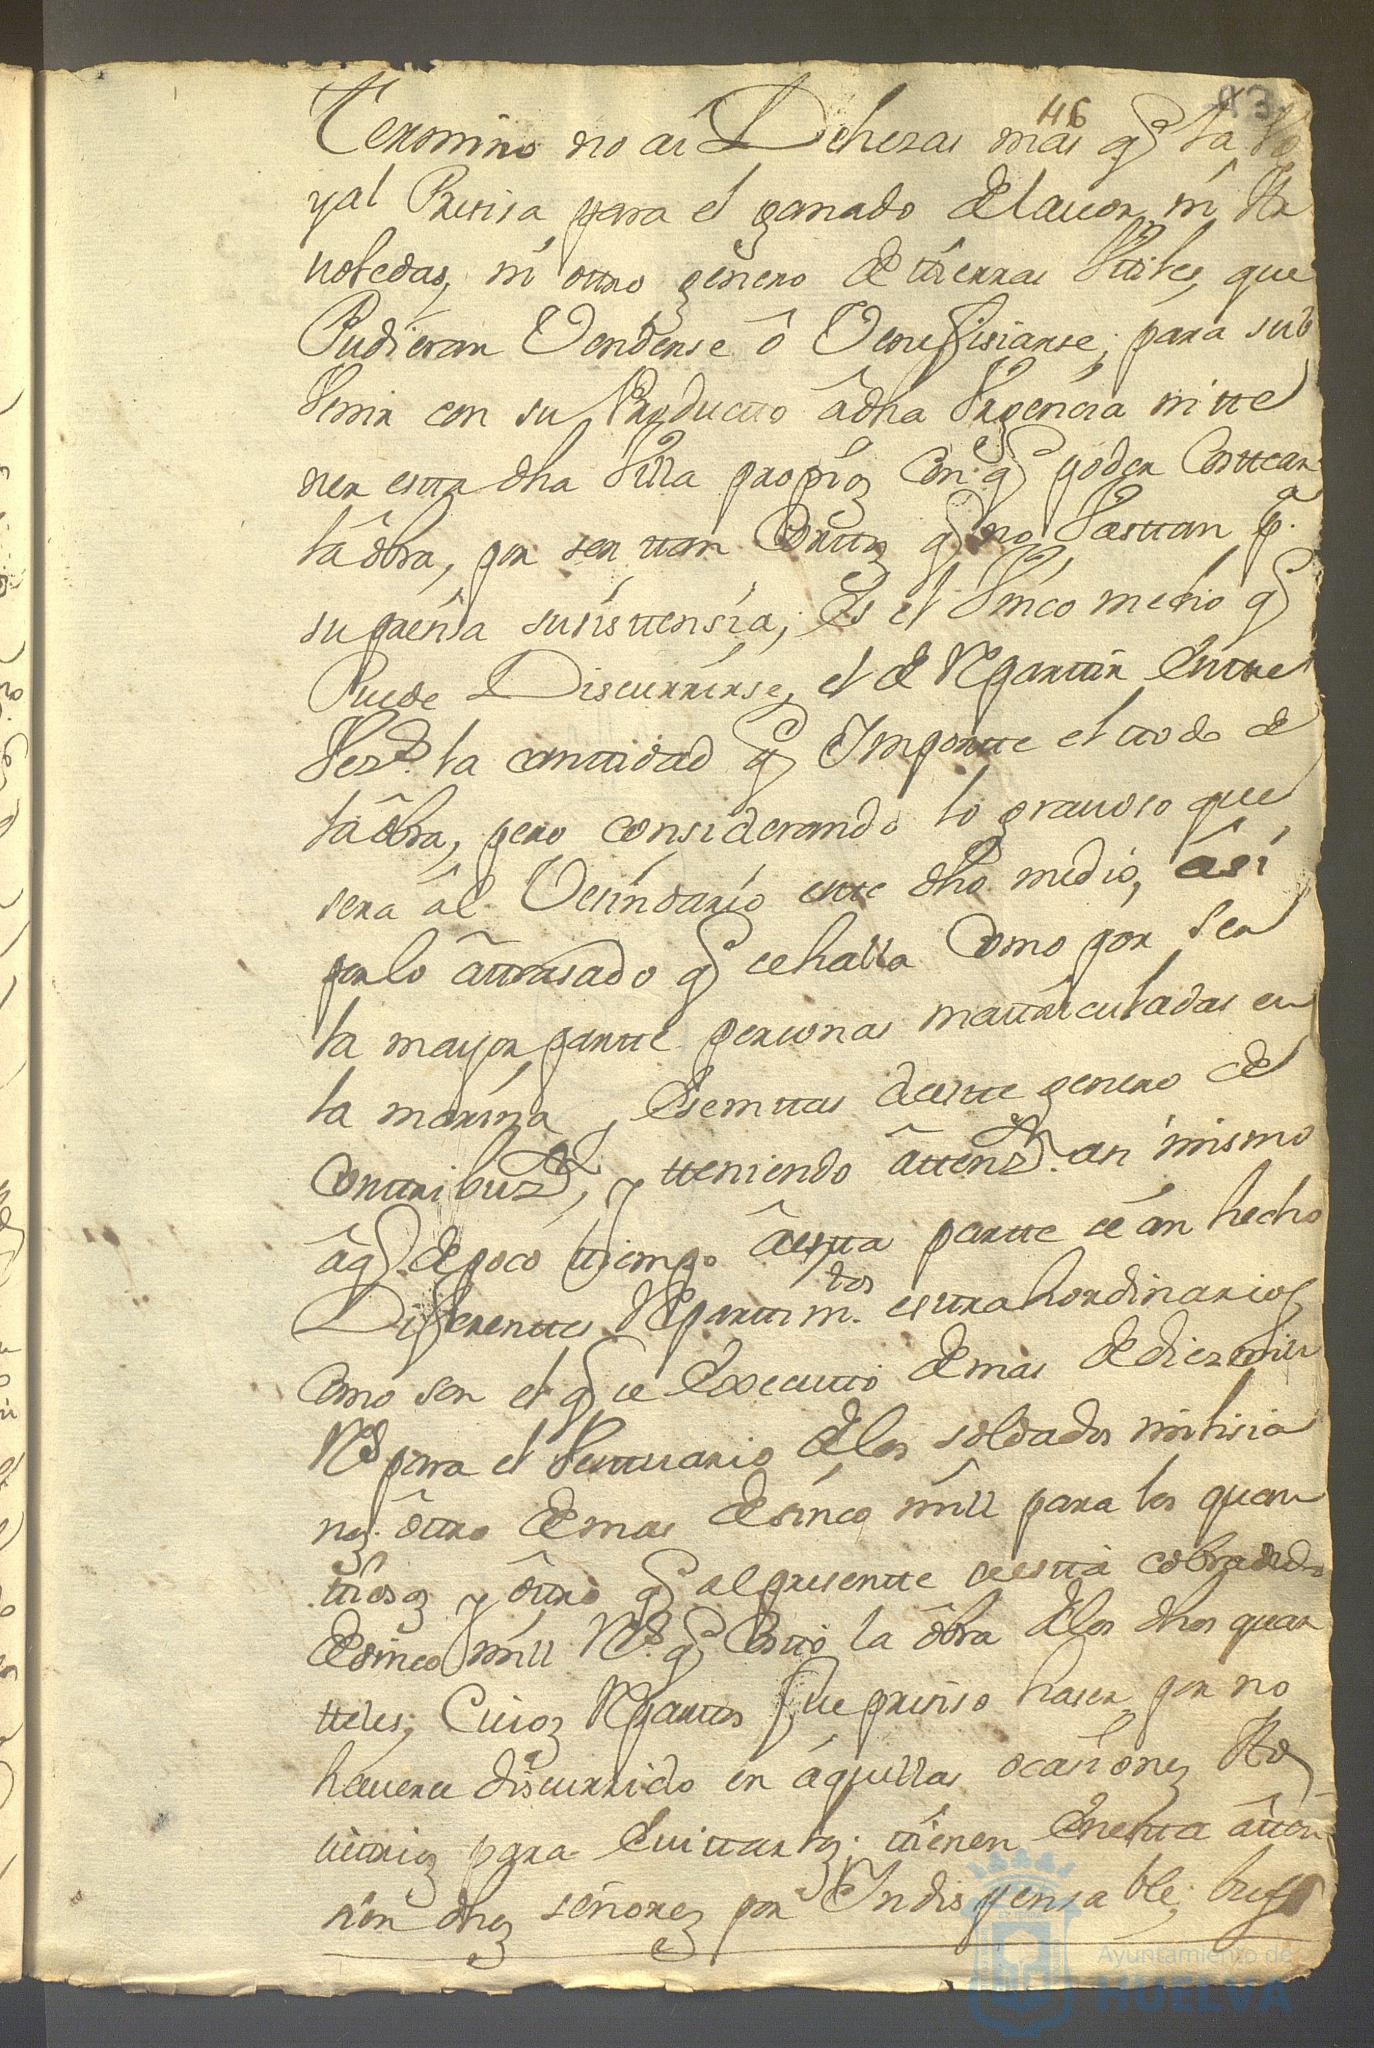 46
43
Termino no ai Dehezas mas q̃ la Bo
yal Presisa para el ganado de lavor, ni Ar
voledas, ni otro genero de tierras Vtiles, que
Pudieran Venderse ô Venefisiarse, para sub
Venir con su Producto âdha Vrgencia ni tte
ner estta dha Villa propios Con q̃ poder Costtear
la ôbra, por ser ttan Corttos q̃ no Vasttan pª.
su presisa subsisttensia, Es el Vnico medio q̃
Puede Discurrirse, el de Reparttir Enttre
Vezos. la canttidad q̃ Imporⱦte el ttodo de
la ôbra, pero considerando lo gravoso que
sera âl Vesindario estte dho medio, âsi
por lo âttrasado q̃ se halla Como por ser
la mayor partte personas mattriculadas en
la marina, Esemttas de estte genero de
Conttribuzon, y tteniendo âttenzon. asi mismo
âq̃ de poco ttiempo âestta partte se án hecho
Diferenttes Reparttimtos. esttrahordinarios
Como son el q̃ se Executtó de mas de diez mill
Rs para el Vesttuario de los soldados milisia
nos. ôttro de mas de sinco mill para los quar
tteles y ôttro q̃ al presentte se estta cobrando
de sinco mill Rs. q̃ Costtó la ôbra de los dhos quar
tteles, Cuios Reparttos fue presiso haser, por no
haverse discurrido en áquellas ocasiones Ar
vittrios para Evittarlos. ttienen En estta âtten
sion dhos señores por Indispensable, busc
Ayuntamiento de
HUELVA